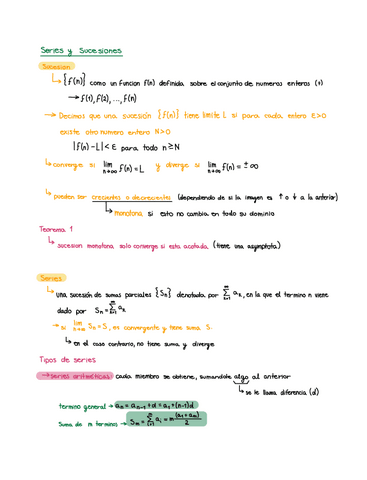 Series y Sucesiones
Sucesion
↳ {f(n)} como un funcion f(n) definida sobre el conjunto de numeros enteros (+)
→ f(1), f(2), ..., f(n)
→ Decimos que una sucesión {f(n)} tiene limite L si para cada entero ε>0
existe otro numero entero N>0
|f(n)-L|<ε para todo n≥N
↳ converge si lim n→∞ f(n)=L y diverge si lim n→∞ f(n)= ±∞
↳ pueden ser crecientes o decrecientes (dependendo de si la imagen es ↑ o ↓ a la anterior)
↳ monotona si esto no cambia en todo su dominio
Teorema 1
↳ sucesion monotona solo converge si esta acotada (tiene una asymptota)
Series
↳ una sucesión de sumas parciales {Sn} denotada por ∞ Σ k=1 ak, en la que el termino n viene
dado por Sn = Σ k=1 ak
→ si lim n→∞ Sn = S, es convergente y tiene suma S.
↳ en el caso contrario, no tiene suma y diverge
Tipos de series
→ series aritméticas cada miembro se obtiene, sumandole algo al anterior
↳ se le llama diferencia (d)
termino general → an = an-1 + d = a1 + (n-1)d
Suma de m terminos → Sm = m Σ i=1 ai = m (a1+am)/2